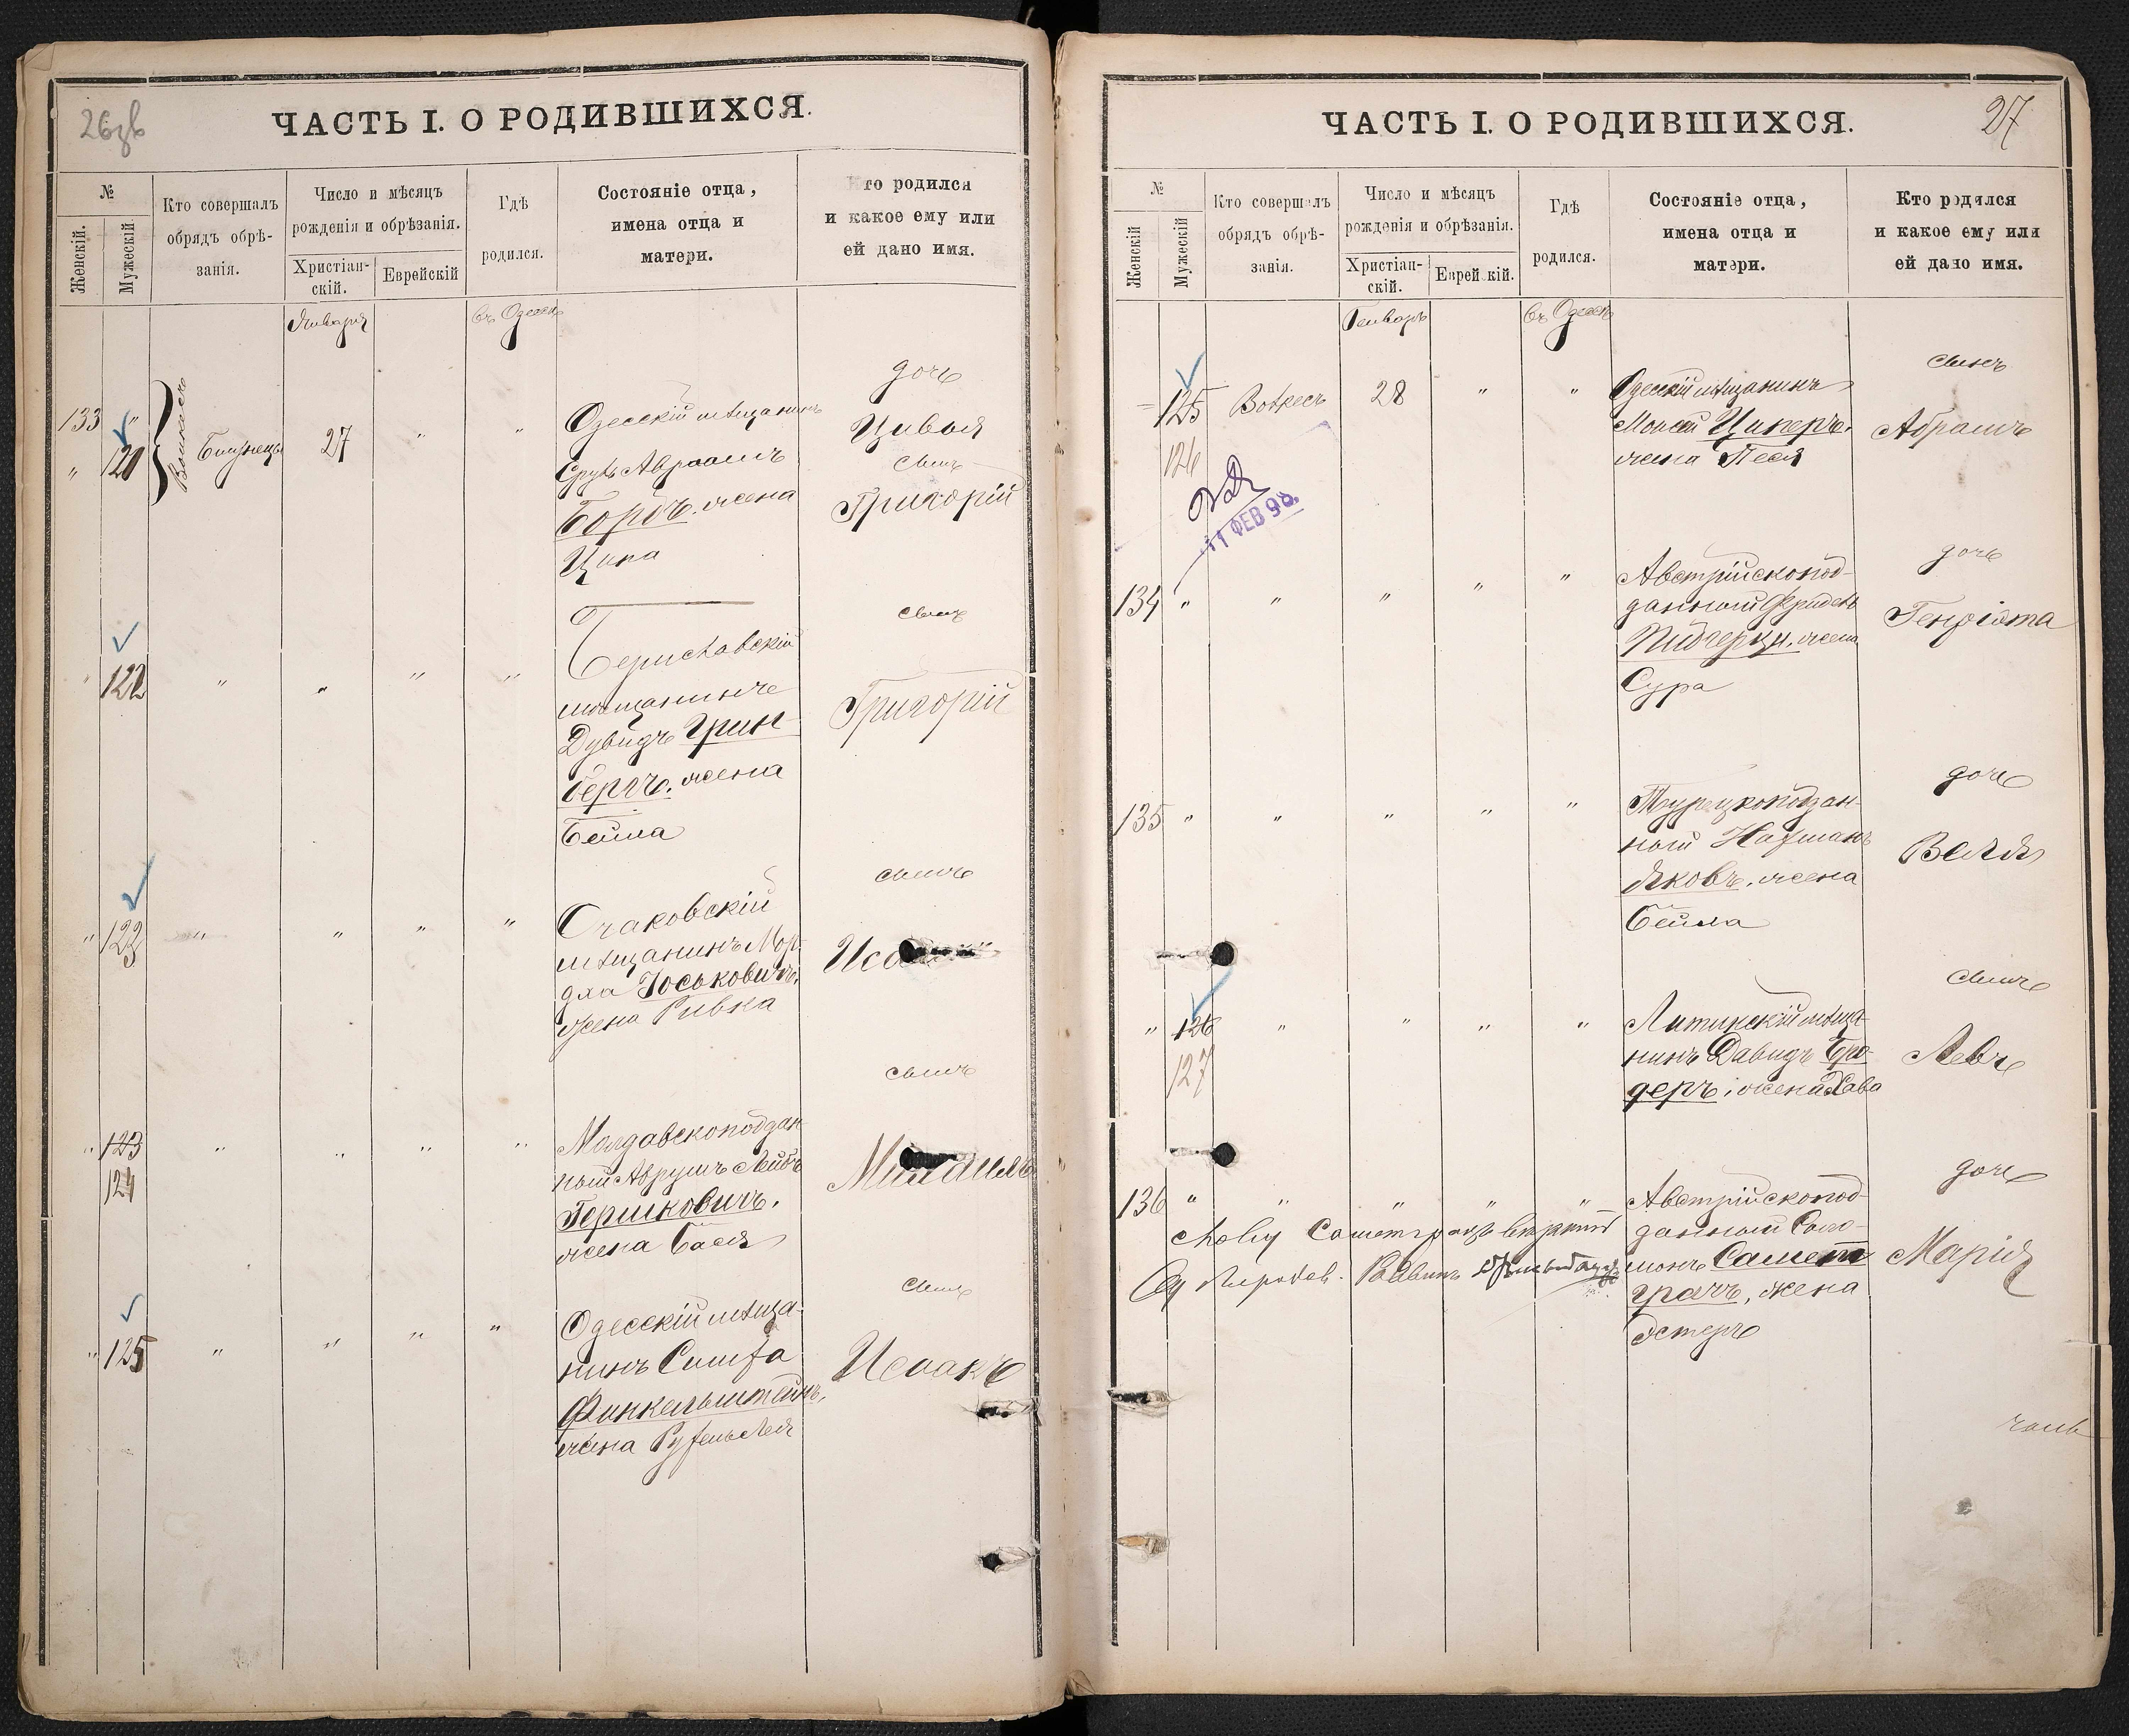 26зв
ЧАСТЬ I. О РОДИВШИХСЯ.
№
Женскій.
Мужескій
Кто совершалъ
обрядъ обрѣ-
занія.
Число и мѣсяцъ
рожденія и обрѣзанія.
Христіан-
скій.
Еврейскій
Гдѣ
родился.
Состояніе отца,
имена отца и
матери.
Кто родился
и какое ему или
ей дано имя.
Января
въ Одессѣ
133 "
" 121
Близнецы
27 " "
Одесскій мѣщанинъ
Сруль Авраамъ
Бортъ. жена
Ципа
дочь
Цивья
сынъ
Григорій
" 122 " " " "
Бериславскій
мѣщанинъ
Дувидъ Грин-
бергъ. жена
Бейла
сынъ
Григорій
" 123 " " " "
Очаковскій
мѣщанинъ Мор-
дха Іоськовичъ,
жена Ривка
сынъ
" 123 " " " "
124
Молдавскоподдан
ный Абрумъ Лейбъ
Гершковичъ.
жена Бася
сынъ
Михаилъ
" 125 " " " "
Одесскій мѣща-
нинъ Симха
Финкельштейнъ,
жена Рухель Лея
сынъ
Исаакъ
27
ЧАСТЬ I. О РОДИВШИХСЯ.
№
Женскій
Мужескій
Кто совершалъ
обрядъ обрѣ-
занія.
Число и мѣсяцъ
рожденія и обрѣзанія.
Христіан-
скій.
Еврейскій.
Гдѣ
родился.
Состояніе отца,
имена отца и
матери.
Кто родился
и какое ему или
ей дано имя.
Генваря
въ Одессѣ
125
126
28 " "
Одесскій мѣщанинъ
Моисей Циперъ.
жена Песя
сынъ
Абрамъ
11 ФЕВ 98.
134 " " " " "
Австрійскопод-
данный
жена
Сура
дочь
Генріэта
135 " " " " "
Турецкоподдан-
ный Нахманъ
Яковъ. жена
Бейла
дочь
Бейла
" 126 " " " "
127
Литинскій мѣща-
нинъ Давидъ Бро-
деръ; жена Хава
сынъ
Левъ
136 " " " " "
Австрійскопод-
данный Соло-
монъ Самет
грачъ, жена
Эстеръ
дочь
Марія